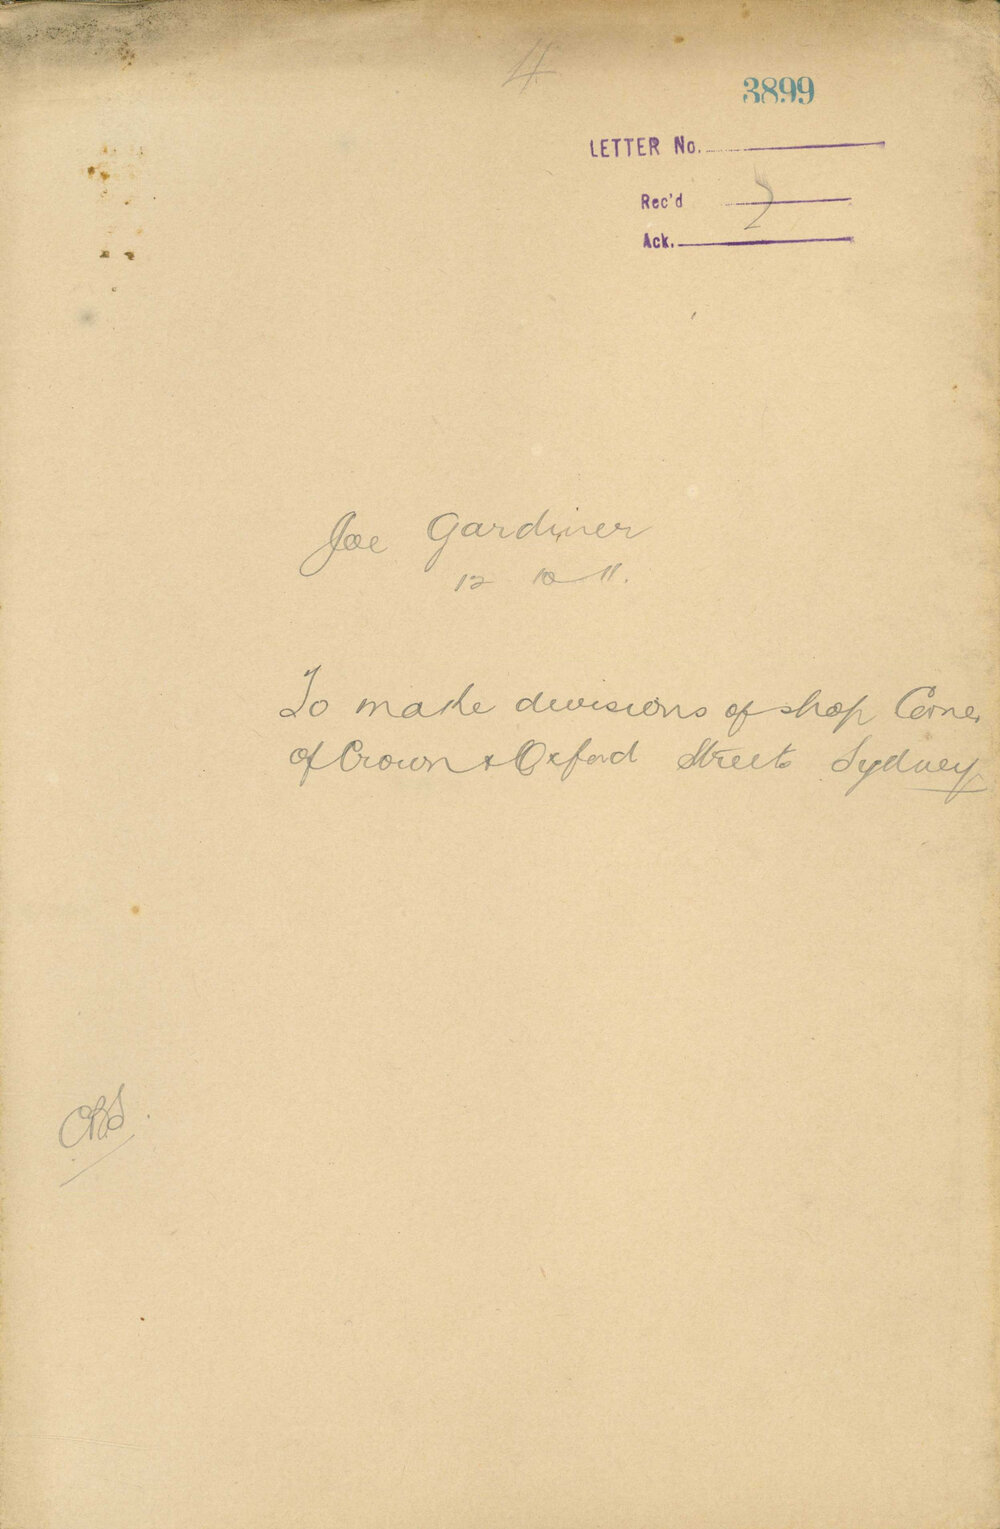 4
3899
LETTER No.
Rec'd
Ack.
Joe Gardiner
12 10 11.
To make divisions of shop Corner
of Crown & Oxford Streets Sydney